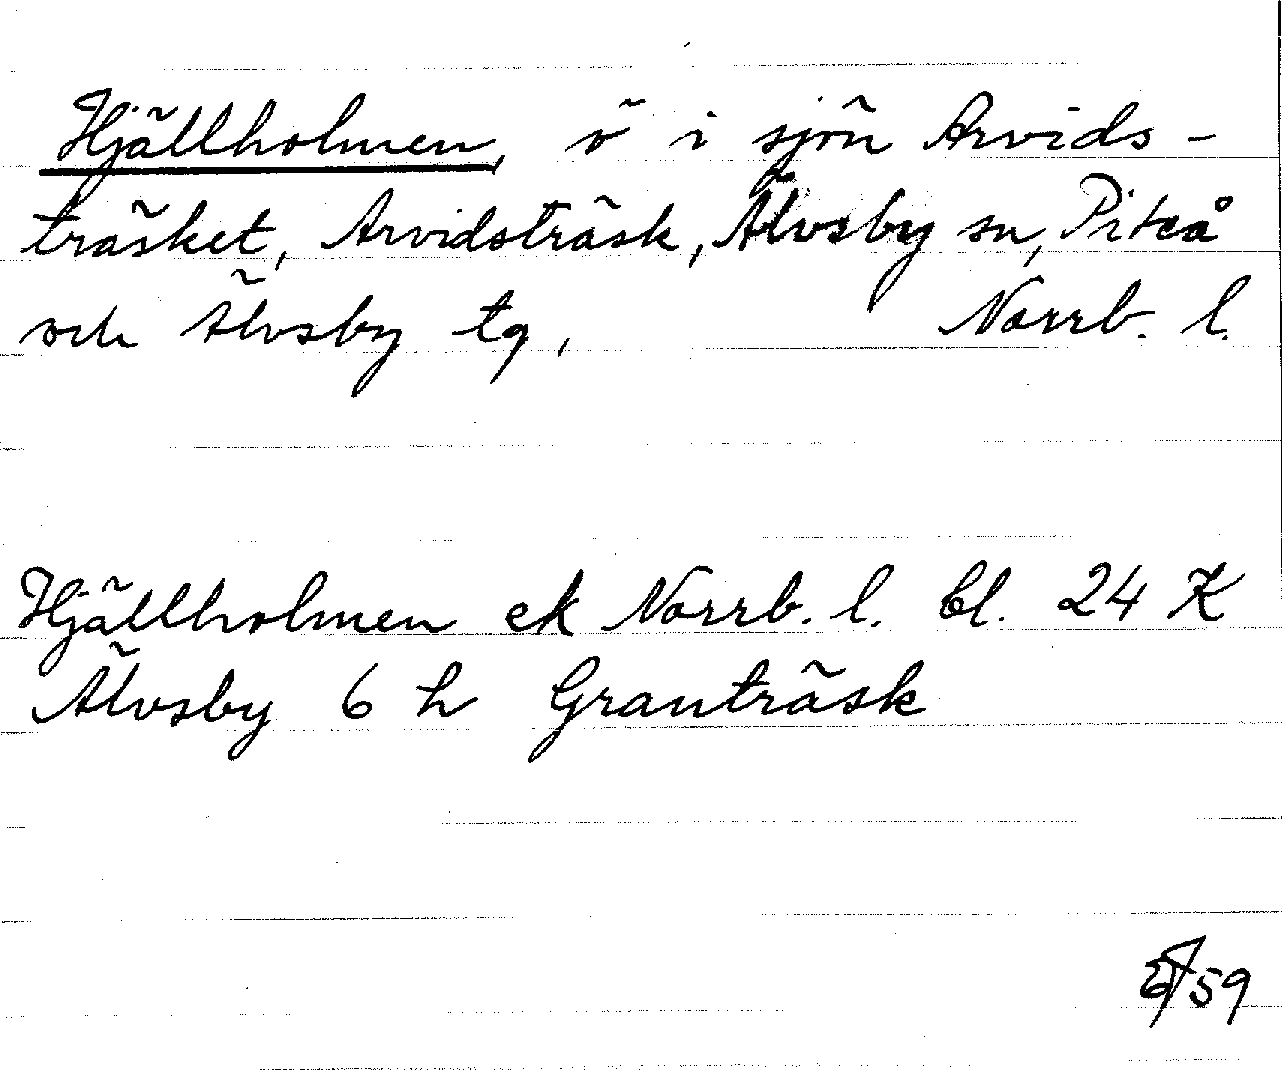 Hjällholmen, ö i sjön Arvids-
träsket, Arvidsträsk, Älvsby sn, Piteå
och Älvsby tg, Norrb. l.
Hjällholmen ek Norrb. l. bl. 24 K
Älvsby 6 h Granträsk
59